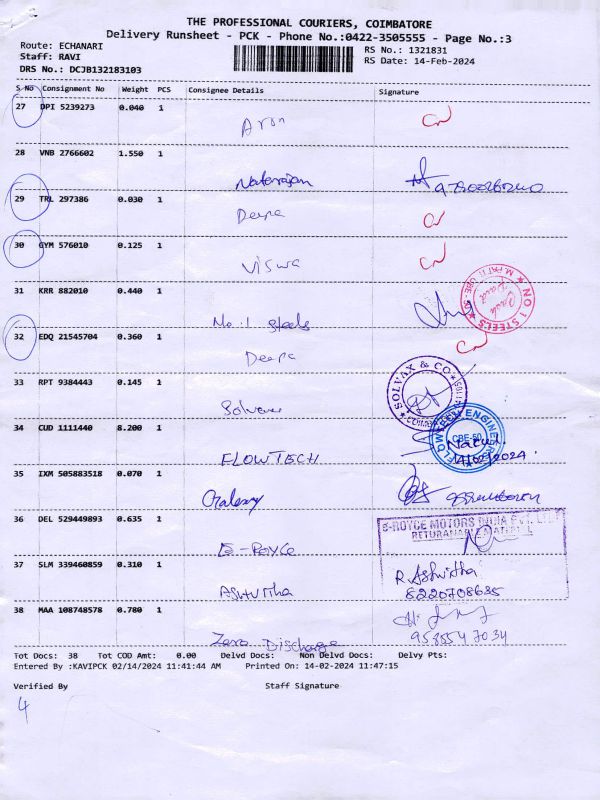 THE PROFESSIONAL COURIERS, COIMBATORE
Delivery Runsheet - PCK - Phone No.:0422-3505555 - Page No.:3
Route: ECHANARI
RS No.: 1321831
Staff: RAVI
RS Date: 14-Feb-2024
DRS No.: DCJB132183103
S No Consignment No Weight PCS Consignee Details Signature
27 DPI 5239273 0.040 1
Arun
28 VNB 2766602 1.550 1
Natarajan
29 TRL 297386 0.030 1
Deepa
30 GYM 576010 0.125 1
Viswa
31 KRR 882010 0.440 1
NO 1 STEELS
No:1 Steels
32 EDQ 21545704 0.360 1
Deepa
33 RPT 9384443 0.145 1
SOLVAX & CO
34 CUD 1111440 8.200 1
FLOWTECH ENGINEER
CBE-50
14/02/2024
FLOWTECH
35 IXM 505883518 0.070 1
Galaxy
36 DEL 529449893 0.635 1
E-ROYCE MOTORS INDIA PVT LTD
RETURNABLE MATERIAL
E-ROYCE
37 SLM 339460859 0.310 1
R. Ashwitha
ASHWITHA 8220708635
38 MAA 108748578 0.780 1
Zero Discharge 9535547034
Tot Docs: 38 Tot COD Amt: 0.00 Delvd Docs: Non Delvd Docs: Delvy Pts:
Entered By :KAVIPCK 02/14/2024 11:41:44 AM Printed On: 14-02-2024 11:47:15
Verified By Staff Signature
4